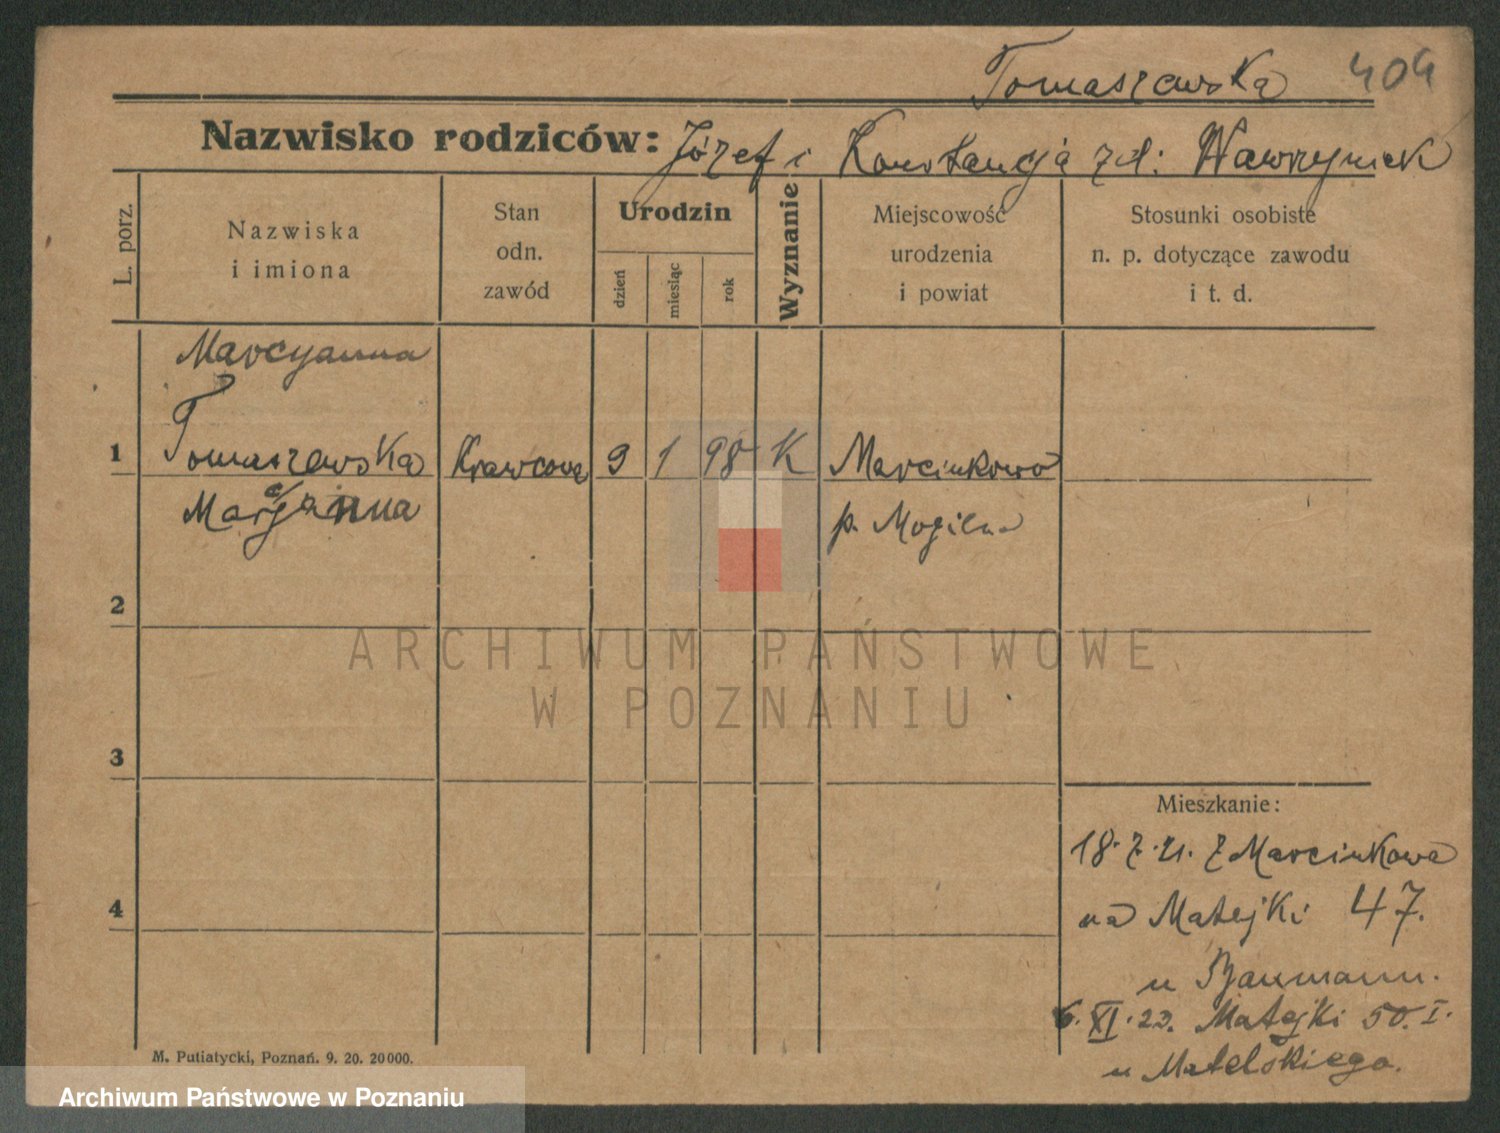 Tomaszewska 404
Nazwisko rodziców: Józef i Konstancja zd: Wawrzyniak
L. porz.
Nazwiska
i imiona
Stan
odn.
zawód
Urodzin
dzień
miesiąc
rok
Wyznanie
Miejscowość
urodzenia
i powiat
Stosunki osobiste
n. p. dotyczące zawodu
i t. d.
Marcyanna
1 Tomaszewska Krawcowa 9 1 98 K Marcinkowo
Marcjanna p. Mogilno
2
ARCHIWUM PAŃSTWOWE
W POZNANIU
3
Mieszkanie:
18.7.21. z Marcinkowa
4 na Matejki 47.
u Baumann.
6.XI.23. Matejki 50.I.
u Matelskiego.
M. Putiatycki, Poznań. 9. 20. 20000.
Archiwum Państwowe w Poznaniu